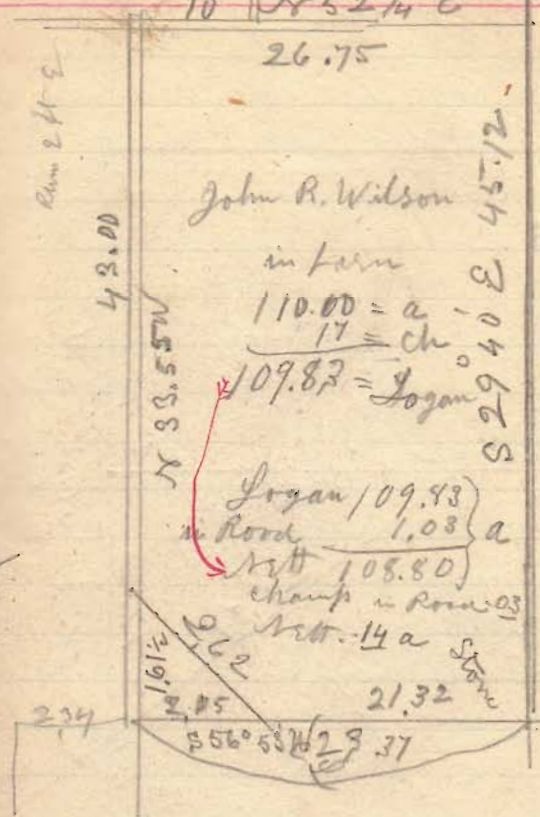 10 N 52 1/4 E
26.75
Run 2 ft E
43.00
N 33.55 W
S 29° 40' E 45.12
John R. Wilson
in
110.00 = a
17 = ch
109.83 = Logan
Logan 109.83
in Road 1.03
Nett 108.80
a
champ in Road .03
Nett .14 a
Stone
1.61 1/2
2.62
2.05
21.32
2.34
S 56° 55' W 23.37